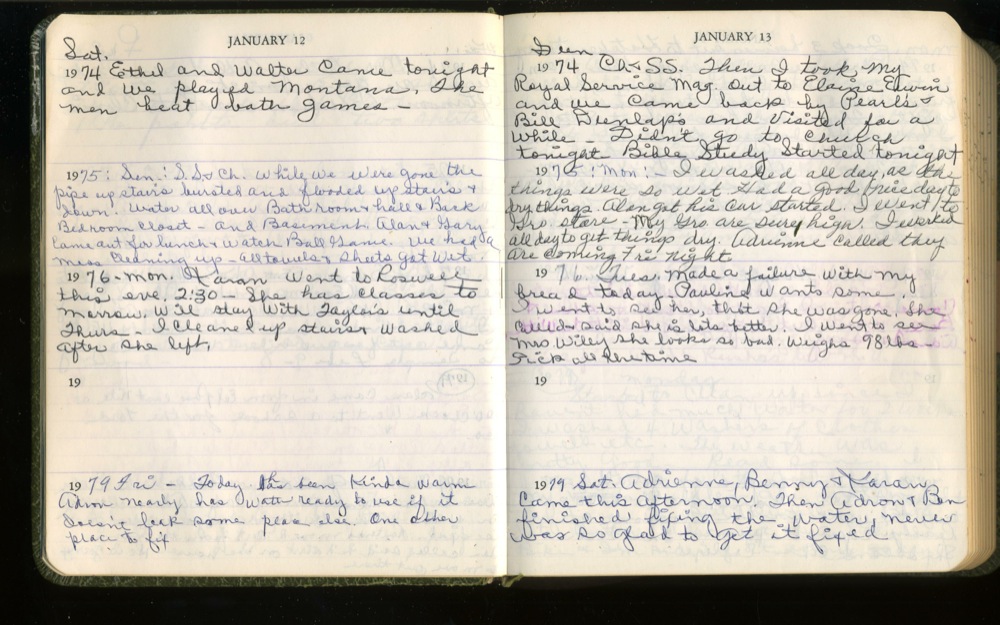 JANUARY 12
Sat.
1974 Ethel and Walter Came tonight
and we played Montana, The
men beat both games –
1975: Sun.: S.S & Ch. while we were gone the
pipe up stairs bursted and flooded up stairs &
down. Water all over Bath room & hall & Back
Bedroom closet – and Basement. Alan & Gary
Came out for lunch & watch Ball Game. We had a
mess Cleaning up – all towels & sheets got wet.
1976 – Mon. Karan went to Roswell
this eve. 2:30 – She has classes to
morrow. Will stay with Taylors until
Thurs – I cleaned up stairs & washed
after she left.
19
1979 Fri – Today has been Kinda warm
Adron nearly has water ready to use if it
doesn't leak some place else. One other
place to fix
JANUARY 13
Sun
1974 Ch & SS. Then I took my
Royal Service Mag. out to Elaine Elwin
and we came back by Pearl's &
Bill Dunlaps and visited for a
while – Didn't go to Church
tonight Bible Study Started tonight
1975: Mon: – I washed all day, as the
things were so wet. Had a good price day to
dry things. Alan got his Car started. I went to
Gro. store – My Gro are sure high. I worked
all day to get things dry. Adrienne called they
are coming Fri night
1976 Tues. Made a failure with my
bread today Pauline wants some.
I went to see her, but she was gone. She
called & said she is lots better. I went to see
Mrs Wiley she looks so bad. Weighs 98 lbs –
Sick all the time
19
1979 Sat: Adrienne, Benny & Karan
Came this afternoon. Then Adron & Ben
finished fixing the water, never
was so glad to get it fixed